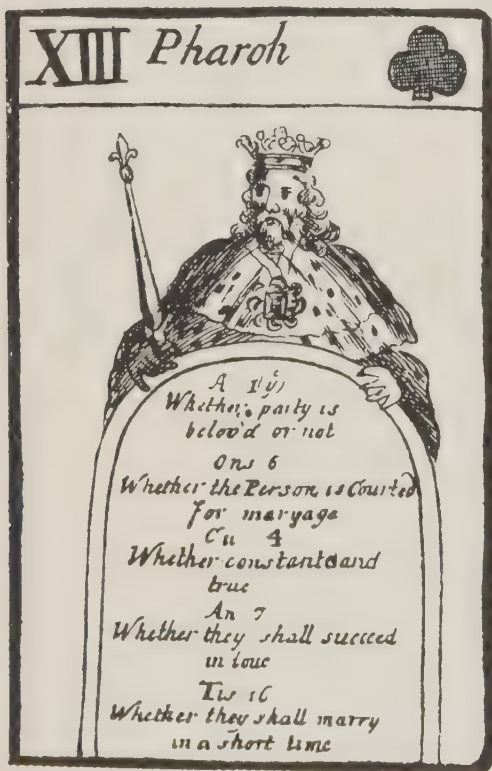 XIII Pharoh
A 1
Whether party is
belov'd or not
Ons 6
Whether the Person is Courted
for maryage
Cu 4
Whether constant and
true
An 7
Whether they shall succeed
in love
Tis 16
Whether they shall marry
in a short time